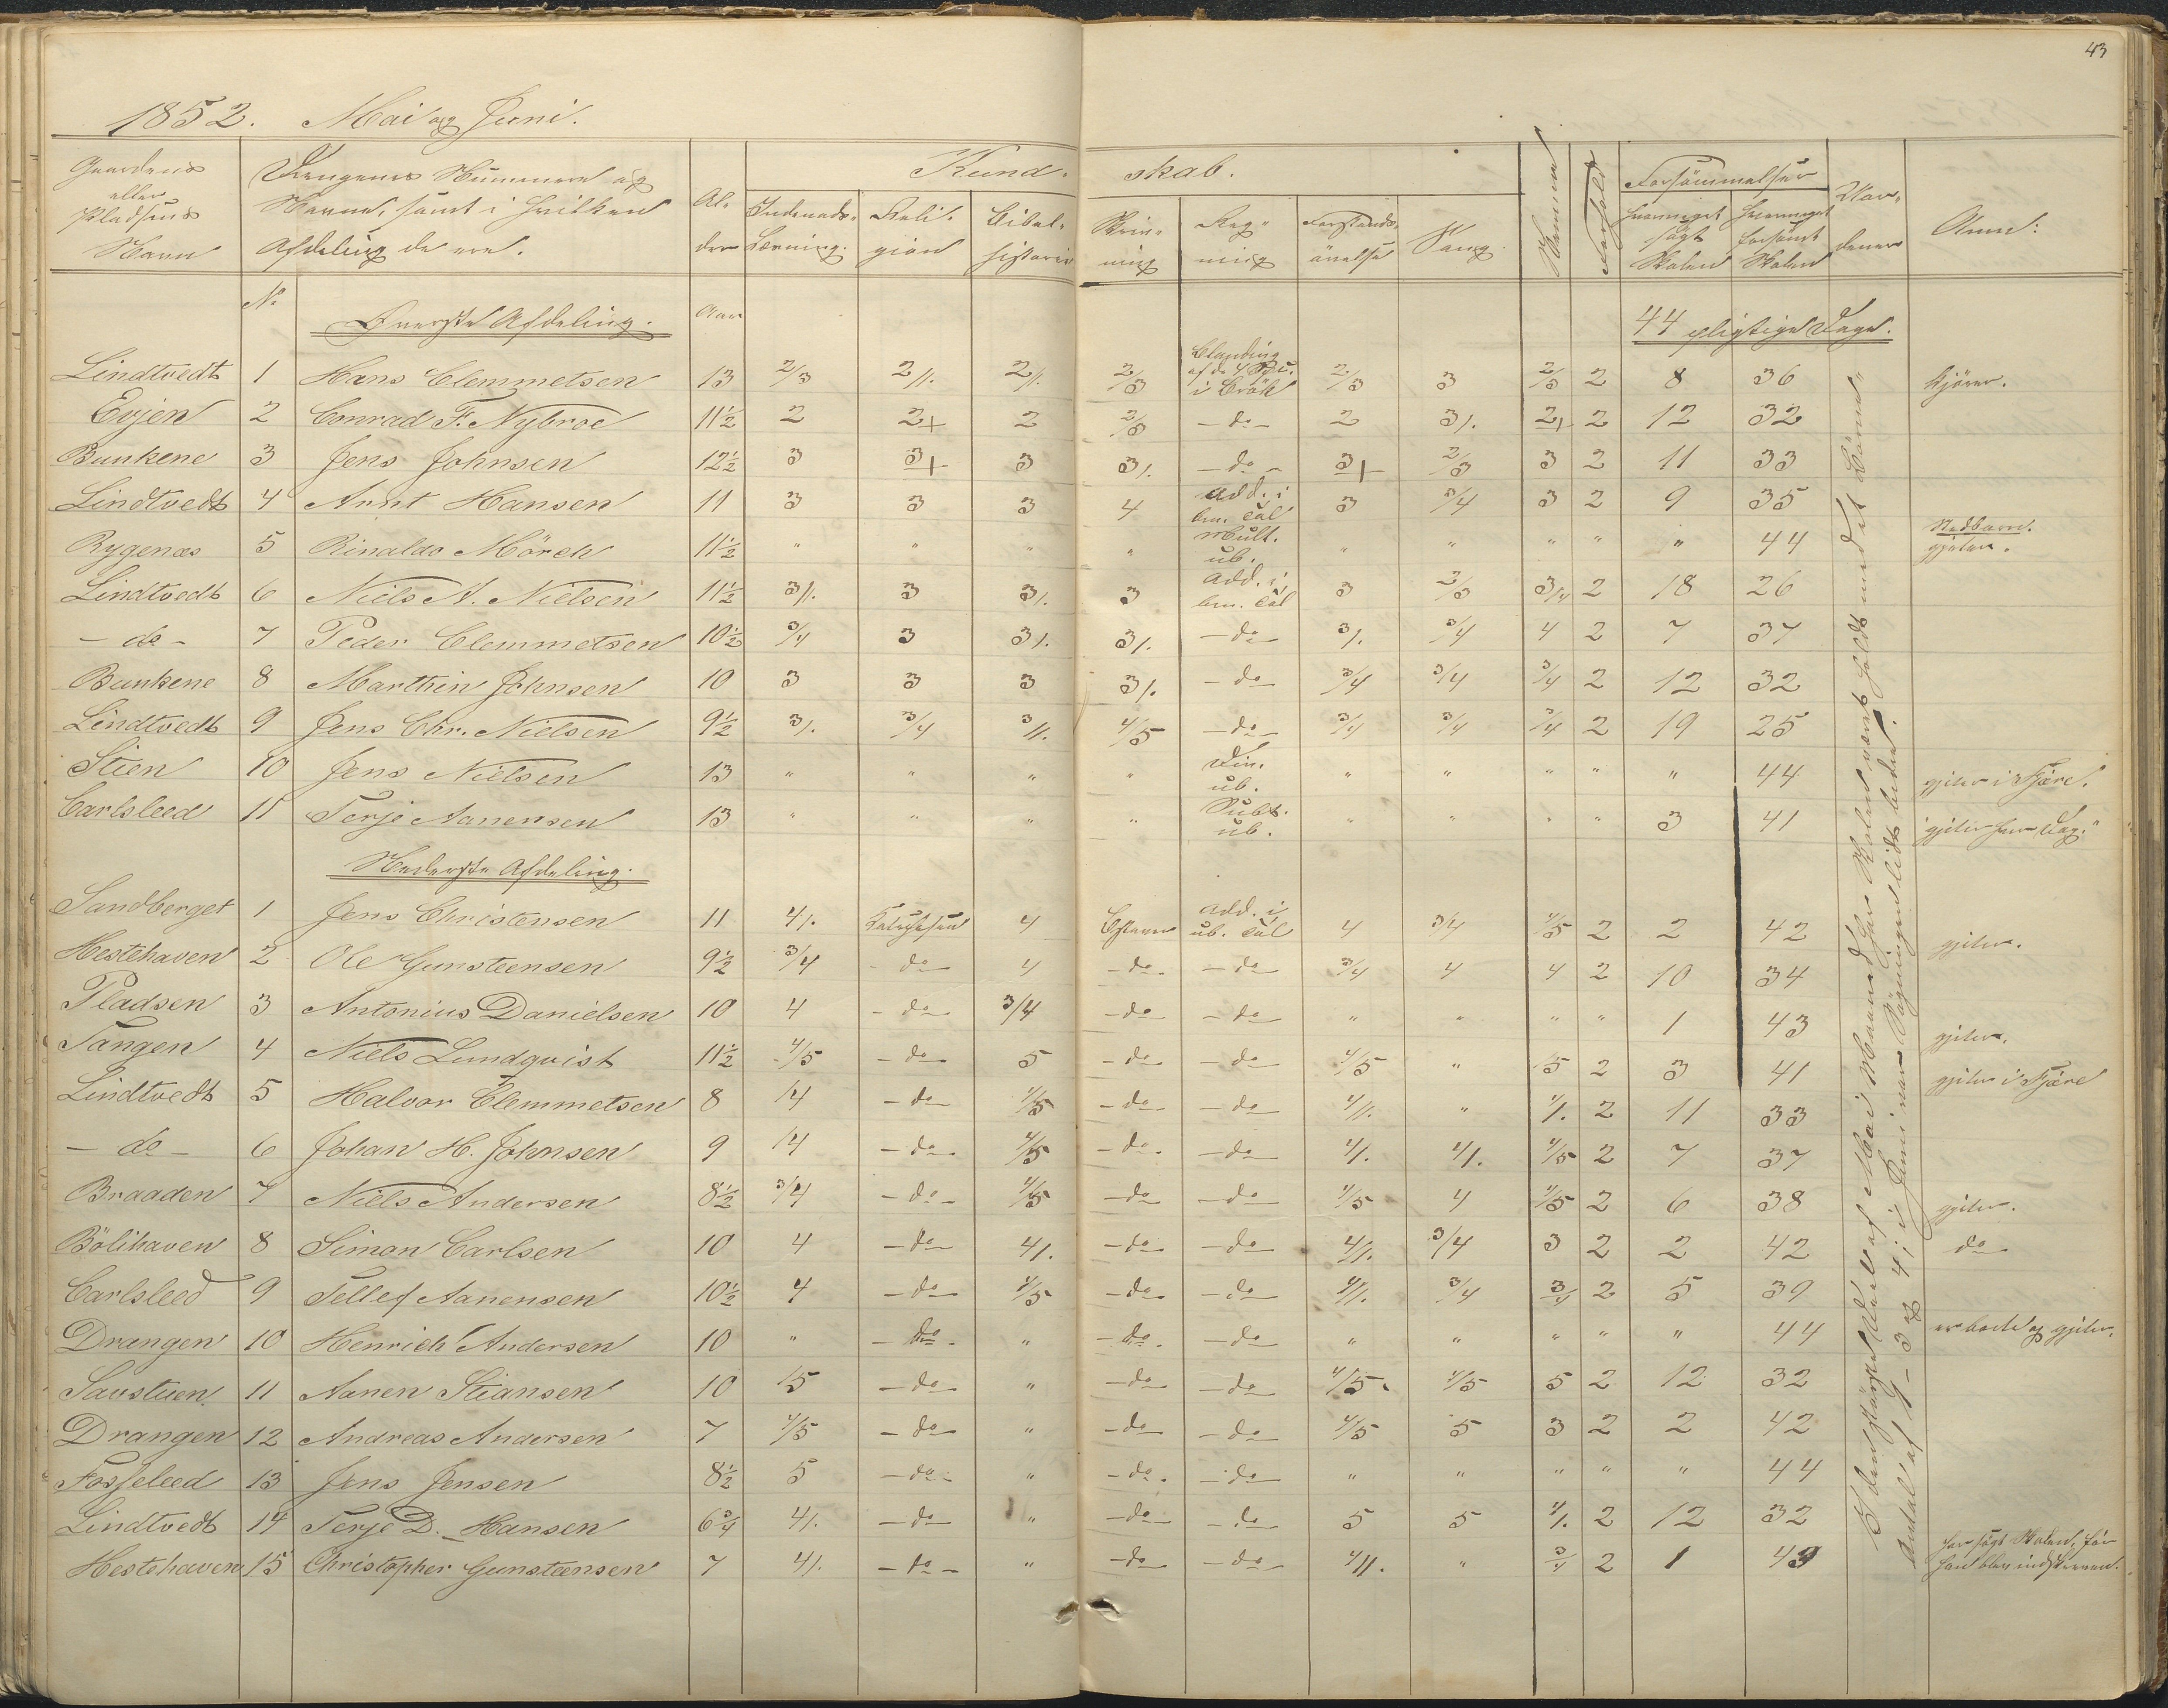 43
1852. Mai og Juni.
Gaardens eller Pladsens Navn | Drengenes Nummere og Navne, samt i hvilken Afdeling de ere. | Alder | Kundskab. | Forsømmelser | Anm:
Indenads-Læsning. | Religion | Bibelhistorie | Skrivning | Regning | Forstandsøvelse | Sang | Nemme | Forhold | hvormeget søgt Skolen | hvormeget forsømt Skolen
No | Øverste Afdeling. | Aar | 44 pligtige Dage.
Lindtvedt 1 Hans Clemmetsen 13 2/3 2/1. 2/1. 2/3 Blanding af de 4 Sp. i Brøk 2/3 3 2/3 2 8 36 kjører.
Evjen 2 Conrad F. Nybroe 11½ 2 2+ 2 2/3 -do- 2 3/. 2+ 2 12 32
Bunkene 3 Jens Johnsen 12½ 3 3+ 3 3/. -do- 3+ 2/3 3 2 11 33
Lindtvedt 4 Arnt Hansen 11 3 3 3 4 Add. i bn. Tal 3 3/4 3 2 9 35
Rygenæs 5 Rinaldo Mörch 11½ " " " " Mult. ub. " " " " " 44 gjeter.
Lindtvedt 6 Niels A. Nielsen 11½ 3/1. 3 3/. 3 Add. i bn. Tal 3 2/3 3/4 2 18 26
- do - 7 Peder Clemmetsen 10½ 3/4 3 3/. 3/. -do- 3/. 3/4 4 2 7 37
Bunkene 8 Marthin Johnsen 10 3 3 3 3/. -do- 3/4 3/4 3/4 2 12 32
Lindtvedt 9 Jens Chr. Nielsen 9½ 3/. 3/4 3/1. 4/5 -do- 3/4 3/4 3/4 2 19 25
Stien 10 Jens Nielsen 13 " " " " Div. ub. " " " " " 44 gjeter i Fjære.
Carlsleed 11 Terje Aanensen 13 " " " " Subt. ub. " " " " 3 41 gjeter hver Dag."
Nederste Afdeling.
Sandberget 1 Jens Christensen 11 4/. 4 Add. i ub. Tal 4 3/4 4/5 2 2 42 gjeter.
Hestehaven 2 Ole Gunsteensen 9½ 3/4 -do- 4 -do- -do- 3/4 4 4 2 10 34
Pladsen 3 Antonius Danielsen 10 4 -do- 3/4 -do- -do- " " " " 1 43 gjeter.
Tangen 4 Niels Lundqvist 11½ 4/5 -do- 5 -do- -do- 4/5 " 5 2 3 41 gjeter i Fjære
Lindtvedt 5 Halvor Clemmetsen 8 4 -do- 4/5 -do- -do- 4/1. " 4/. 2 11 33
- do - 6 Johan H. Johnsen 9 4 -do- 4/5 -do- -do- 4/. 4/. 4/5 2 7 37
Braaden 7 Niels Andersen 8½ 3/4 -do- 4/5 -do- -do- 4/5 4 4/5 2 6 38 gjeter.
Bölihaven 8 Simon Carlsen 10 4 -do- 4/. -do- -do- 4/1. 3/4 3 2 2 42 do
Carlsleed 9 Tellef Aanensen 10½ 4 -do- 4/5 -do- -do- 4/1. 3/4 3/4 2 5 39
Drangen 10 Henrich Andersen 10 " -do- " -do- -do- " " " " " 44 er borte og gjeter.
Saustuen 11 Aanen Stiansen 10 5 -do- " -do- -do- 4/5 4/5 5 2 12 32
Drangen 12 Andreas Andersen 7 4/5 -do- " -do- -do- 4/5 5 3 2 2 42
Fosseleed 13 Jens Jensen 8½ 5 -do- " -do- -do- " " " " " 44
Lindtvedt 14 Terje D. Hansen 6¾ 4/. -do- " -do- -do- 5 5 4/. 2 12 32
Hestehaven 15 Christopher Gunsteensen 7 4/. -do- " -do- -do- 4/1. " 3/4 2 1 43 har søgt Skolen, før han blev indskreven.